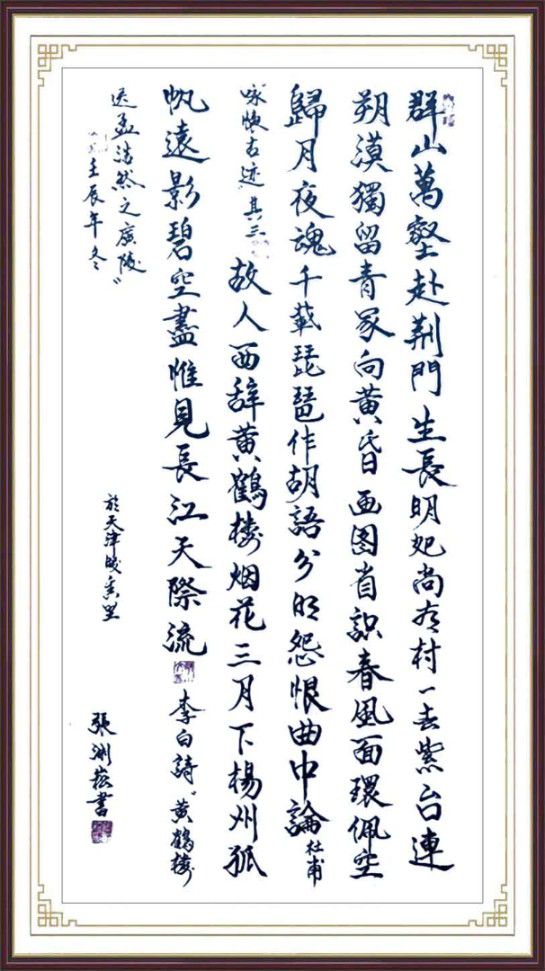 群山萬壑赴荆門生長明妃尚有村一去紫台連
朔漠獨留青冢向黄昏画图省識春風面環佩空
歸月夜魂千載琵琶作胡語分明怨恨曲中論杜甫
咏怀古迹其三故人西辞黄鶴楼烟花三月下楊州孤
帆遠影碧空盡惟見長江天際流李白詩“黄鶴楼
送孟浩然之廣陵”
壬辰年冬於天津里
張書